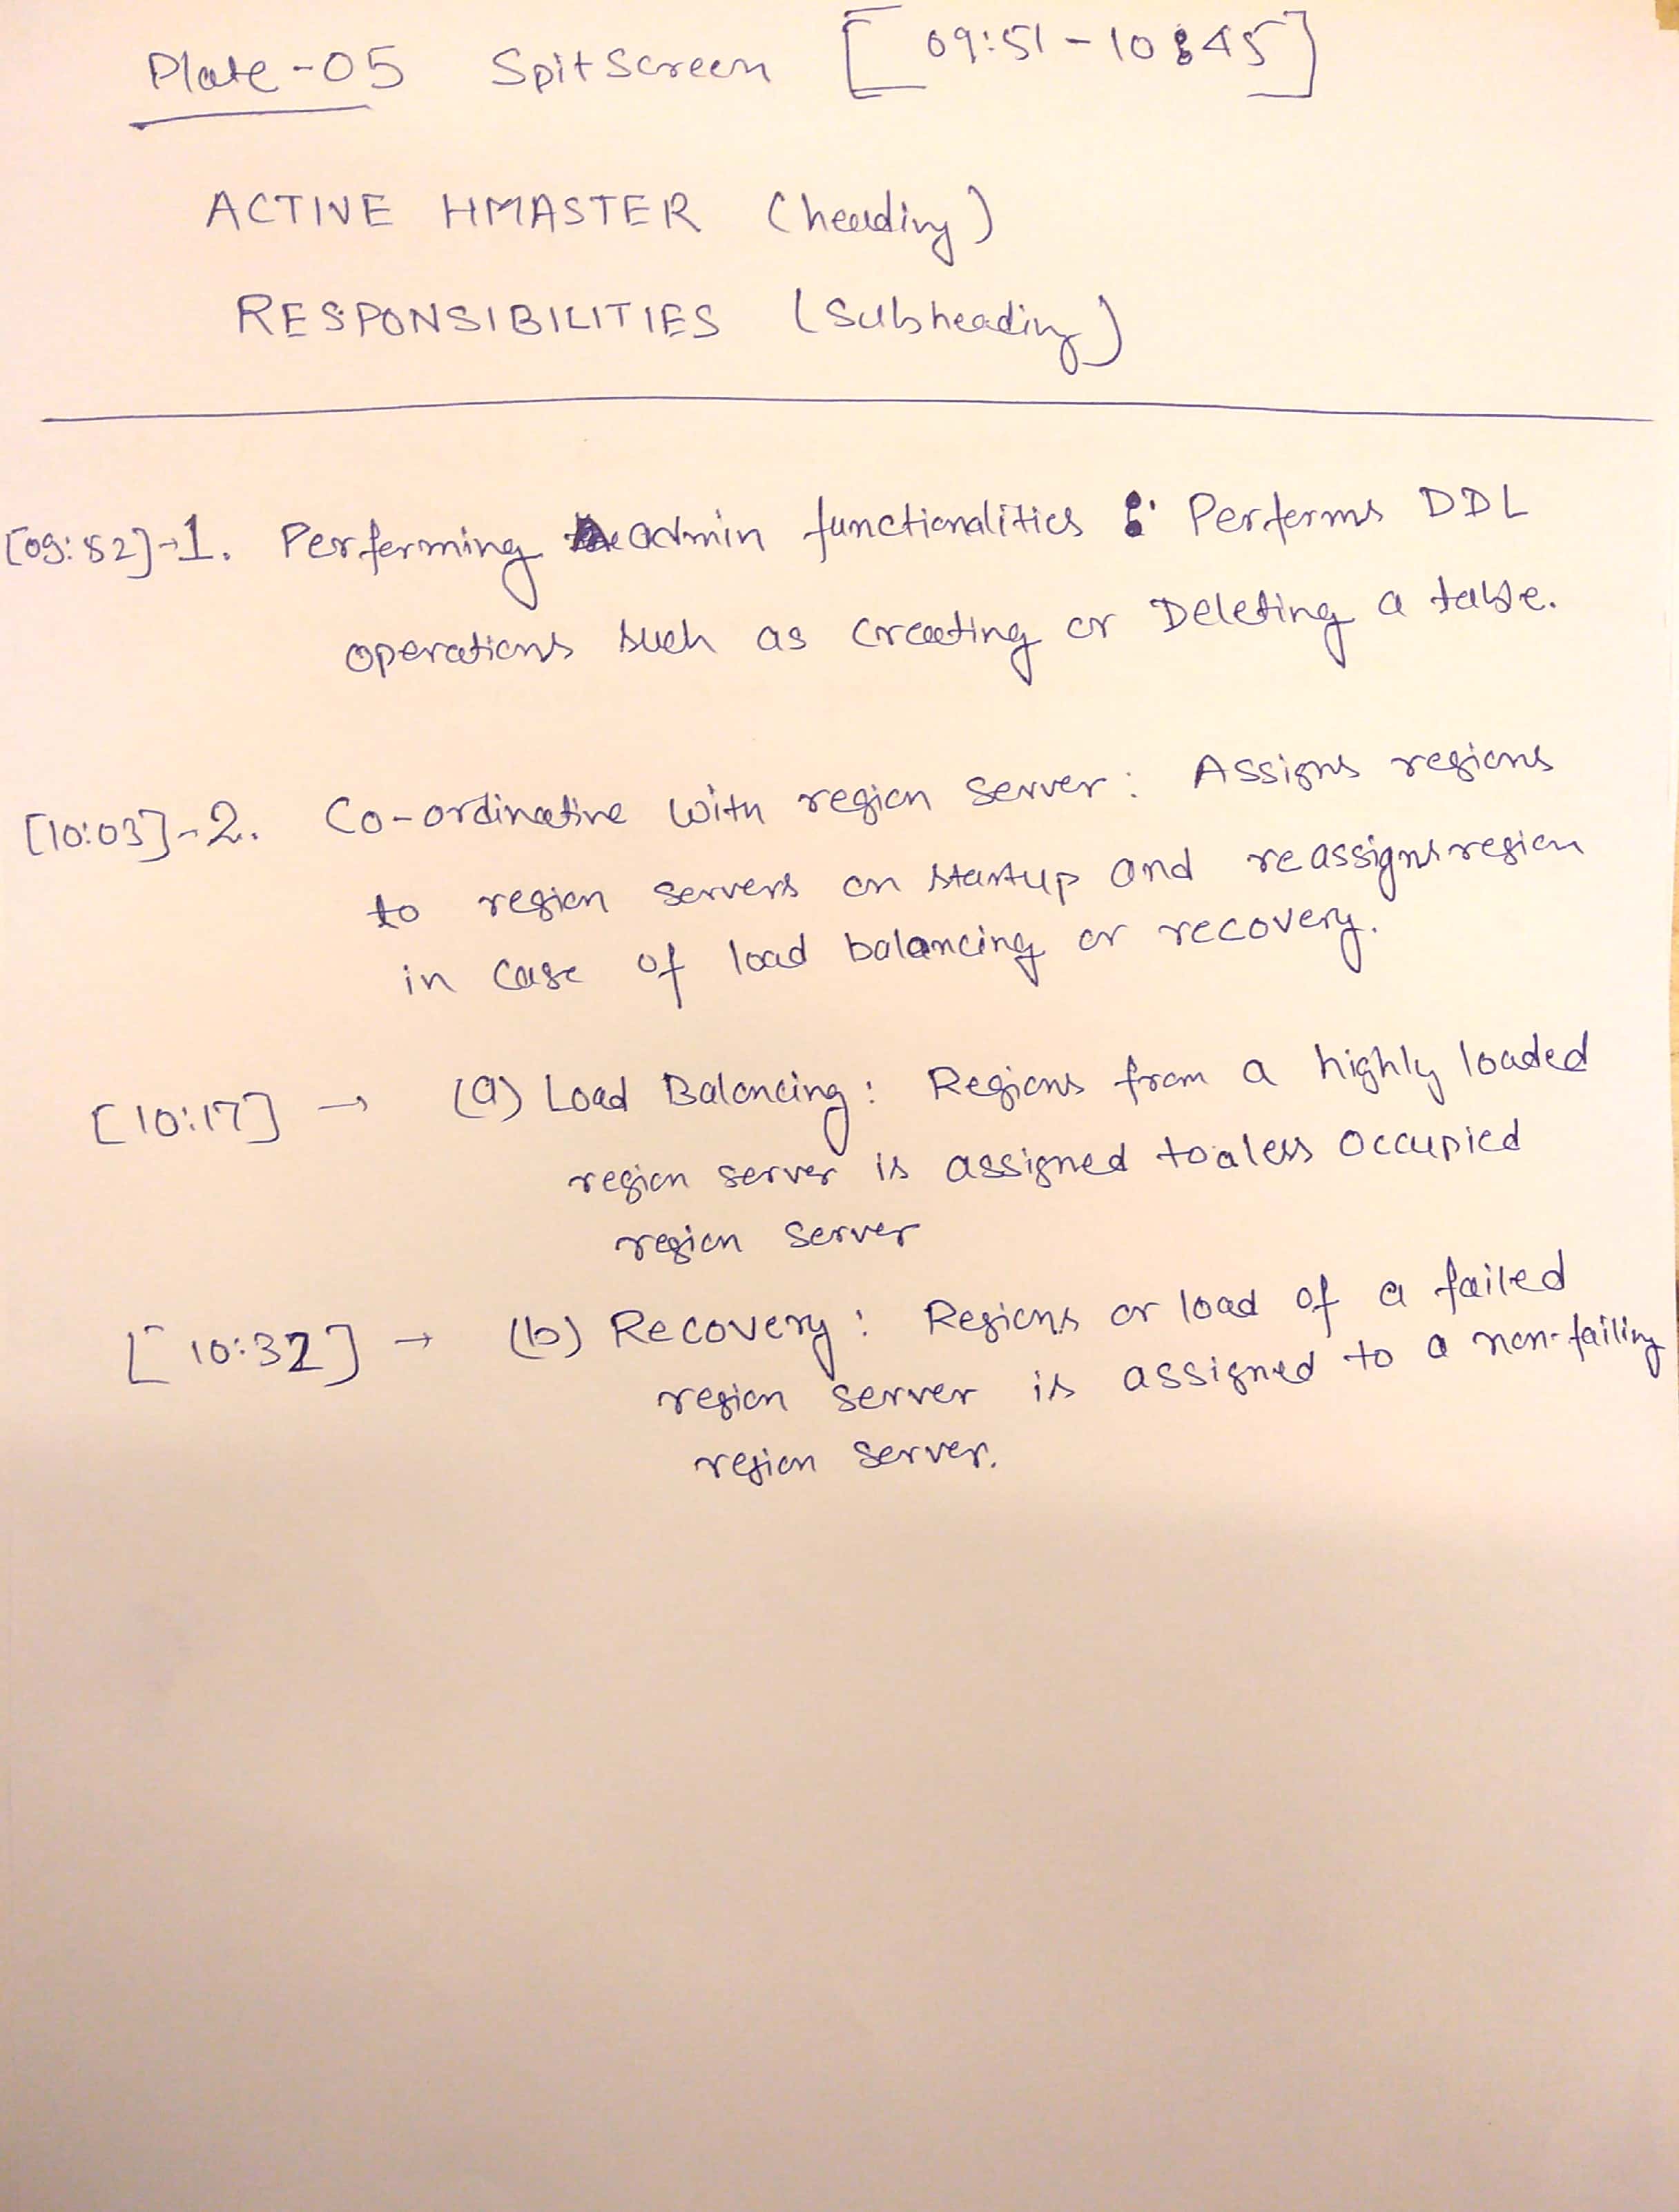 Plate-05 SpitScreen [09:51-10:45]
ACTIVE HMASTER (heading)
RESPONSIBILITIES (Subheading)
[09:52]-1. Performing admin functionalities : Performs DDL
operations such as Creating or Deleting a table.
[10:03]-2. Co-ordinative with region server: Assigns regions
to region servers on startup and reassigns region
in case of load balancing or recovery.
[10:17] → (a) Load Balancing: Regions from a highly loaded
region server is assigned to a less occupied
region server
[10:32] → (b) Recovery: Regions or load of a failed
region server is assigned to a non-failing
region server.